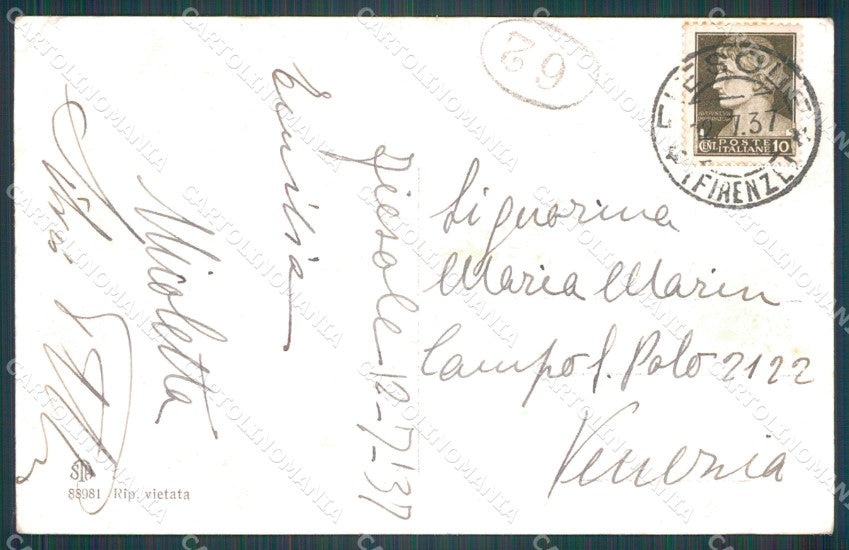 Fiesole-12-7-'37
Emilia
Nicoletta
Signorina
Maria Marin
Campo S. Polo 2122
Venezia
62
POSTE
ITALIANE
CENT. 10
FIESOLE
12.7.37
(FIRENZE)
88981 Rip. vietata
CARTOLINOMANIA